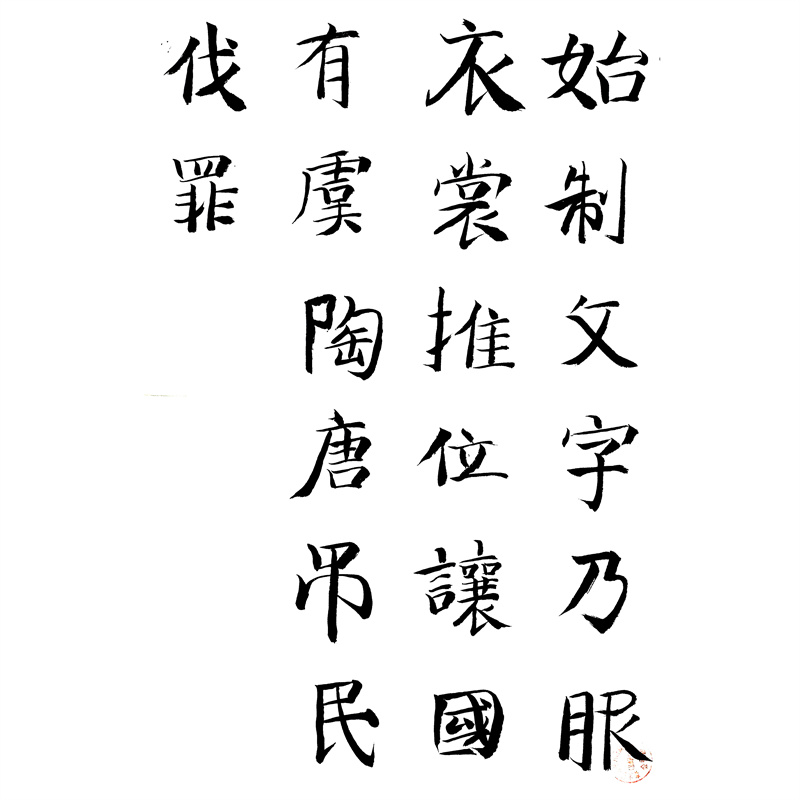 始制文字乃服
衣裳推位讓國
有虞陶唐吊民
伐罪